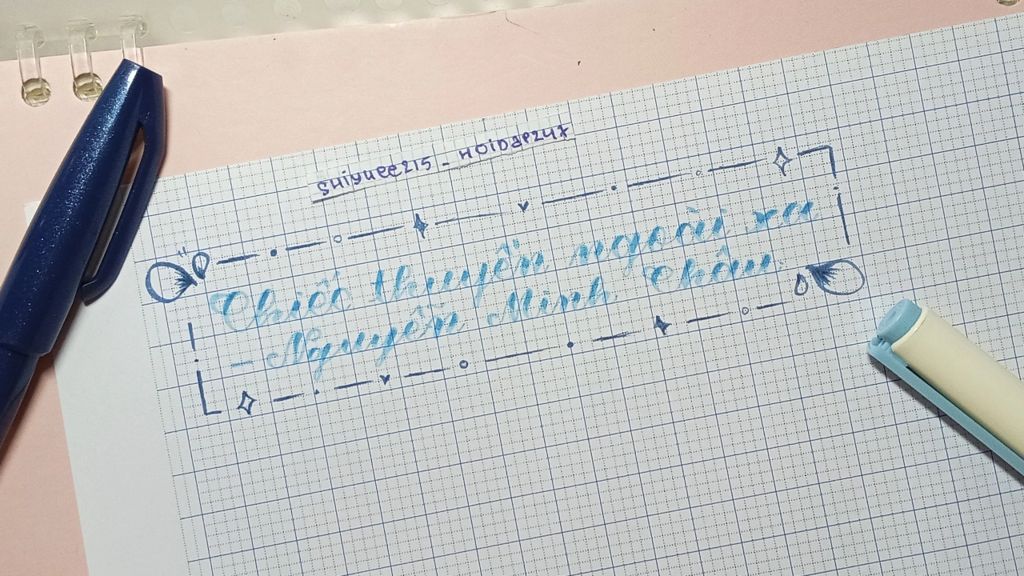 shiyuee215 - HOIDAP247
Chiếc thuyền ngoài xa
- Nguyễn Minh Châu.